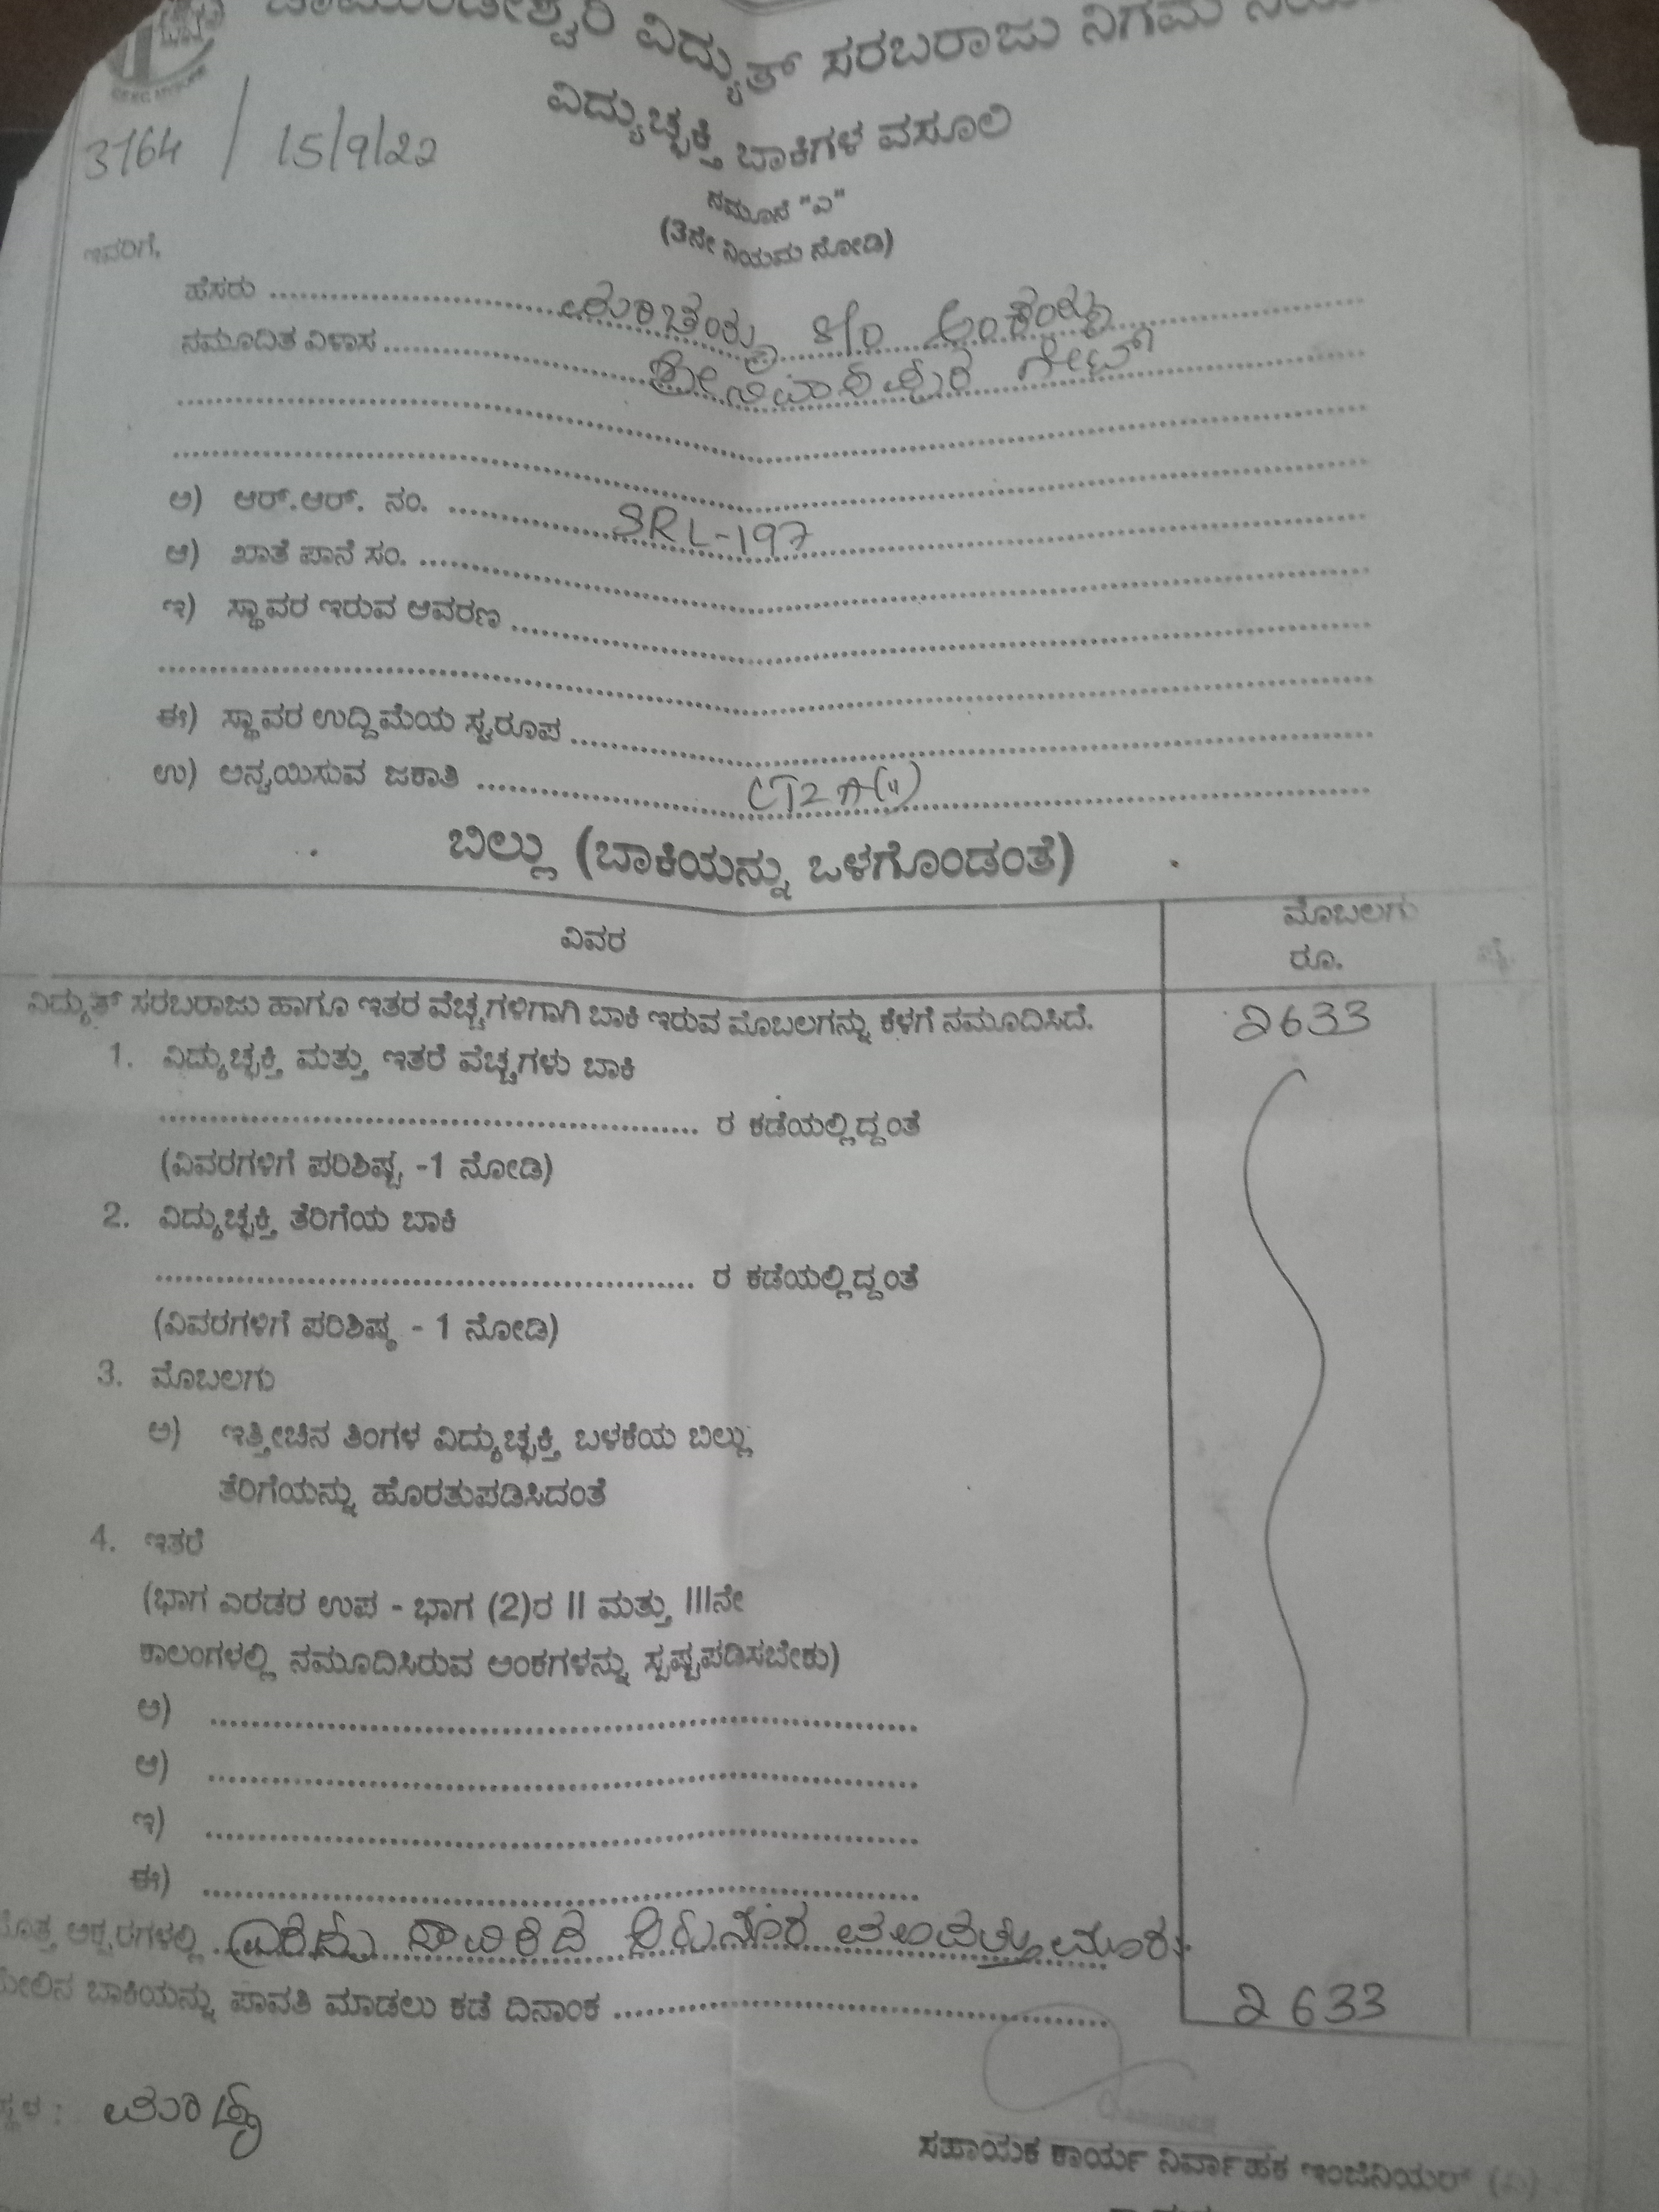 ವಿದ್ಯುತ್ ಸರಬರಾಜು ನಿಗಮ
ವಿದ್ಯುಚ್ಛಕ್ತಿ ಬಾಕಿಗಳ ವಸೂಲಿ
3164 / 15/9/22
ನಮೂನೆ "ಎ"
(3ನೇ ನಿಯಮ ನೋಡಿ)
ಇವರಿಗೆ,
ಹೆಸರು .......... S/o
ನಮೂದಿತ ವಿಳಾಸ .......... ಗೇಟ್
ಅ) ಆರ್.ಆರ್. ನಂ. .......... SRL-197
ಆ) ಖಾತೆ ಪಾನೆ ಸಂ. ..........
ಇ) ಸ್ಥಾವರ ಇರುವ ಆವರಣ ..........
ಈ) ಸ್ಥಾವರ ಉದ್ದಿಮೆಯ ಸ್ವರೂಪ ..........
ಉ) ಅನ್ವಯಿಸುವ ಜಕಾತಿ ..........
ಬಿಲ್ಲು (ಬಾಕಿಯನ್ನು ಒಳಗೊಂಡಂತೆ)
ವಿವರ ಮೊಬಲಗು
ರೂ. ಪೈ.
ವಿದ್ಯುತ್ ಸರಬರಾಜು ಹಾಗೂ ಇತರ ವೆಚ್ಚಗಳಿಗಾಗಿ ಬಾಕಿ ಇರುವ ಮೊಬಲಗನ್ನು ಕೆಳಗೆ ನಮೂದಿಸಿದೆ. 2633
1. ವಿದ್ಯುಚ್ಛಕ್ತಿ ಮತ್ತು ಇತರೆ ವೆಚ್ಚಗಳು ಬಾಕಿ
.......... ರ ಕಡೆಯಲ್ಲಿದ್ದಂತೆ
(ವಿವರಗಳಿಗೆ ಪರಿಶಿಷ್ಟ -1 ನೋಡಿ)
2. ವಿದ್ಯುಚ್ಛಕ್ತಿ ತೆರಿಗೆಯ ಬಾಕಿ
.......... ರ ಕಡೆಯಲ್ಲಿದ್ದಂತೆ
(ವಿವರಗಳಿಗೆ ಪರಿಶಿಷ್ಠ - 1 ನೋಡಿ)
3. ಮೊಬಲಗು
ಅ) ಇತ್ತೀಚಿನ ತಿಂಗಳ ವಿದ್ಯುಚ್ಛಕ್ತಿ ಬಳಕೆಯ ಬಿಲ್ಲು
ತೆರಿಗೆಯನ್ನು ಹೊರತುಪಡಿಸಿದಂತೆ
4. ಇತರೆ
(ಭಾಗ ಎರಡರ ಉಪ - ಭಾಗ (2)ರ II ಮತ್ತು IIIನೇ
ಕಾಲಂಗಳಲ್ಲಿ ನಮೂದಿಸಿರುವ ಅಂಕಗಳನ್ನು ಸ್ಪಷ್ಟಪಡಿಸಬೇಕು)
ಅ) ..........
ಆ) ..........
ಇ) ..........
ಈ) ..........
ಅಕ್ಷರಗಳಲ್ಲಿ .......... ಸಾವಿರದ
ಬಾಕಿಯನ್ನು ಪಾವತಿ ಮಾಡಲು ಕಡೆ ದಿನಾಂಕ .......... 2633
ಸಹಾಯಕ ಕಾರ್ಯ ನಿರ್ವಾಹಕ ಇಂಜಿನಿಯರ್